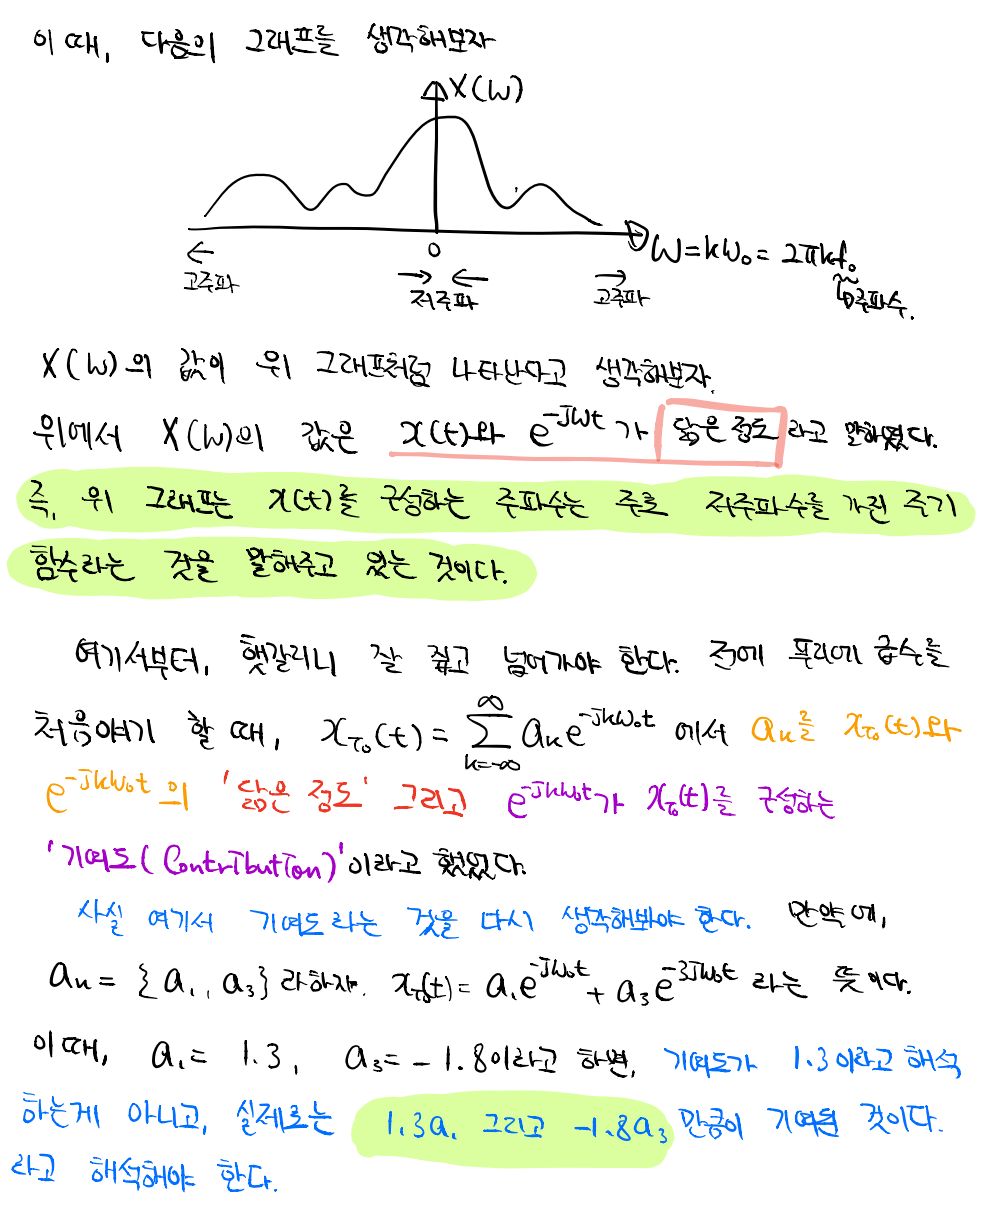 이 때, 다음의 그래프를 생각해보자
X(w)
0
w=kw₀=2πkf₀
↳주파수.
← 고주파
→ ← 저주파
→ 고주파
X(w)의 값이 위 그래프처럼 나타난다고 생각해보자.
위에서 X(w)의 값은 x(t)와 e^-jwt가 닮은 정도 라고 말하였다.
즉, 위 그래프는 x(t)를 구성하는 주파수는 주로 저주파수를 가진 주기
함수라는 것을 말해주고 있는 것이다.
여기서부터, 햇갈리니 잘 짚고 넘어가야 한다. 전에 푸리에 급수를
처음얘기 할 때, x_T₀(t) = ∑_{k=-∞}^{∞} aₖe^-jkw₀t 에서 aₖ를 x_T₀(t)와
e^-jkw₀t의 '닮은 정도' 그리고 e^-jkw₀t가 x_T₀(t)를 구성하는
'기여도(Contribution)'이라고 했었다.
사실 여기서 기여도라는 것을 다시 생각해봐야 한다. 만약에,
aₖ = {a₁, a₃} 라하자. x_T₀(t) = a₁e^-jw₀t + a₃e^-3jw₀t 라는 뜻이다.
이때, a₁ = 1.3, a₃ = -1.8이라고 하면, 기여도가 1.3이라고 해석
하는게 아니고, 실제로는 1.3a₁ 그리고 -1.8a₃ 만큼이 기여된 것이다.
라고 해석해야 한다.